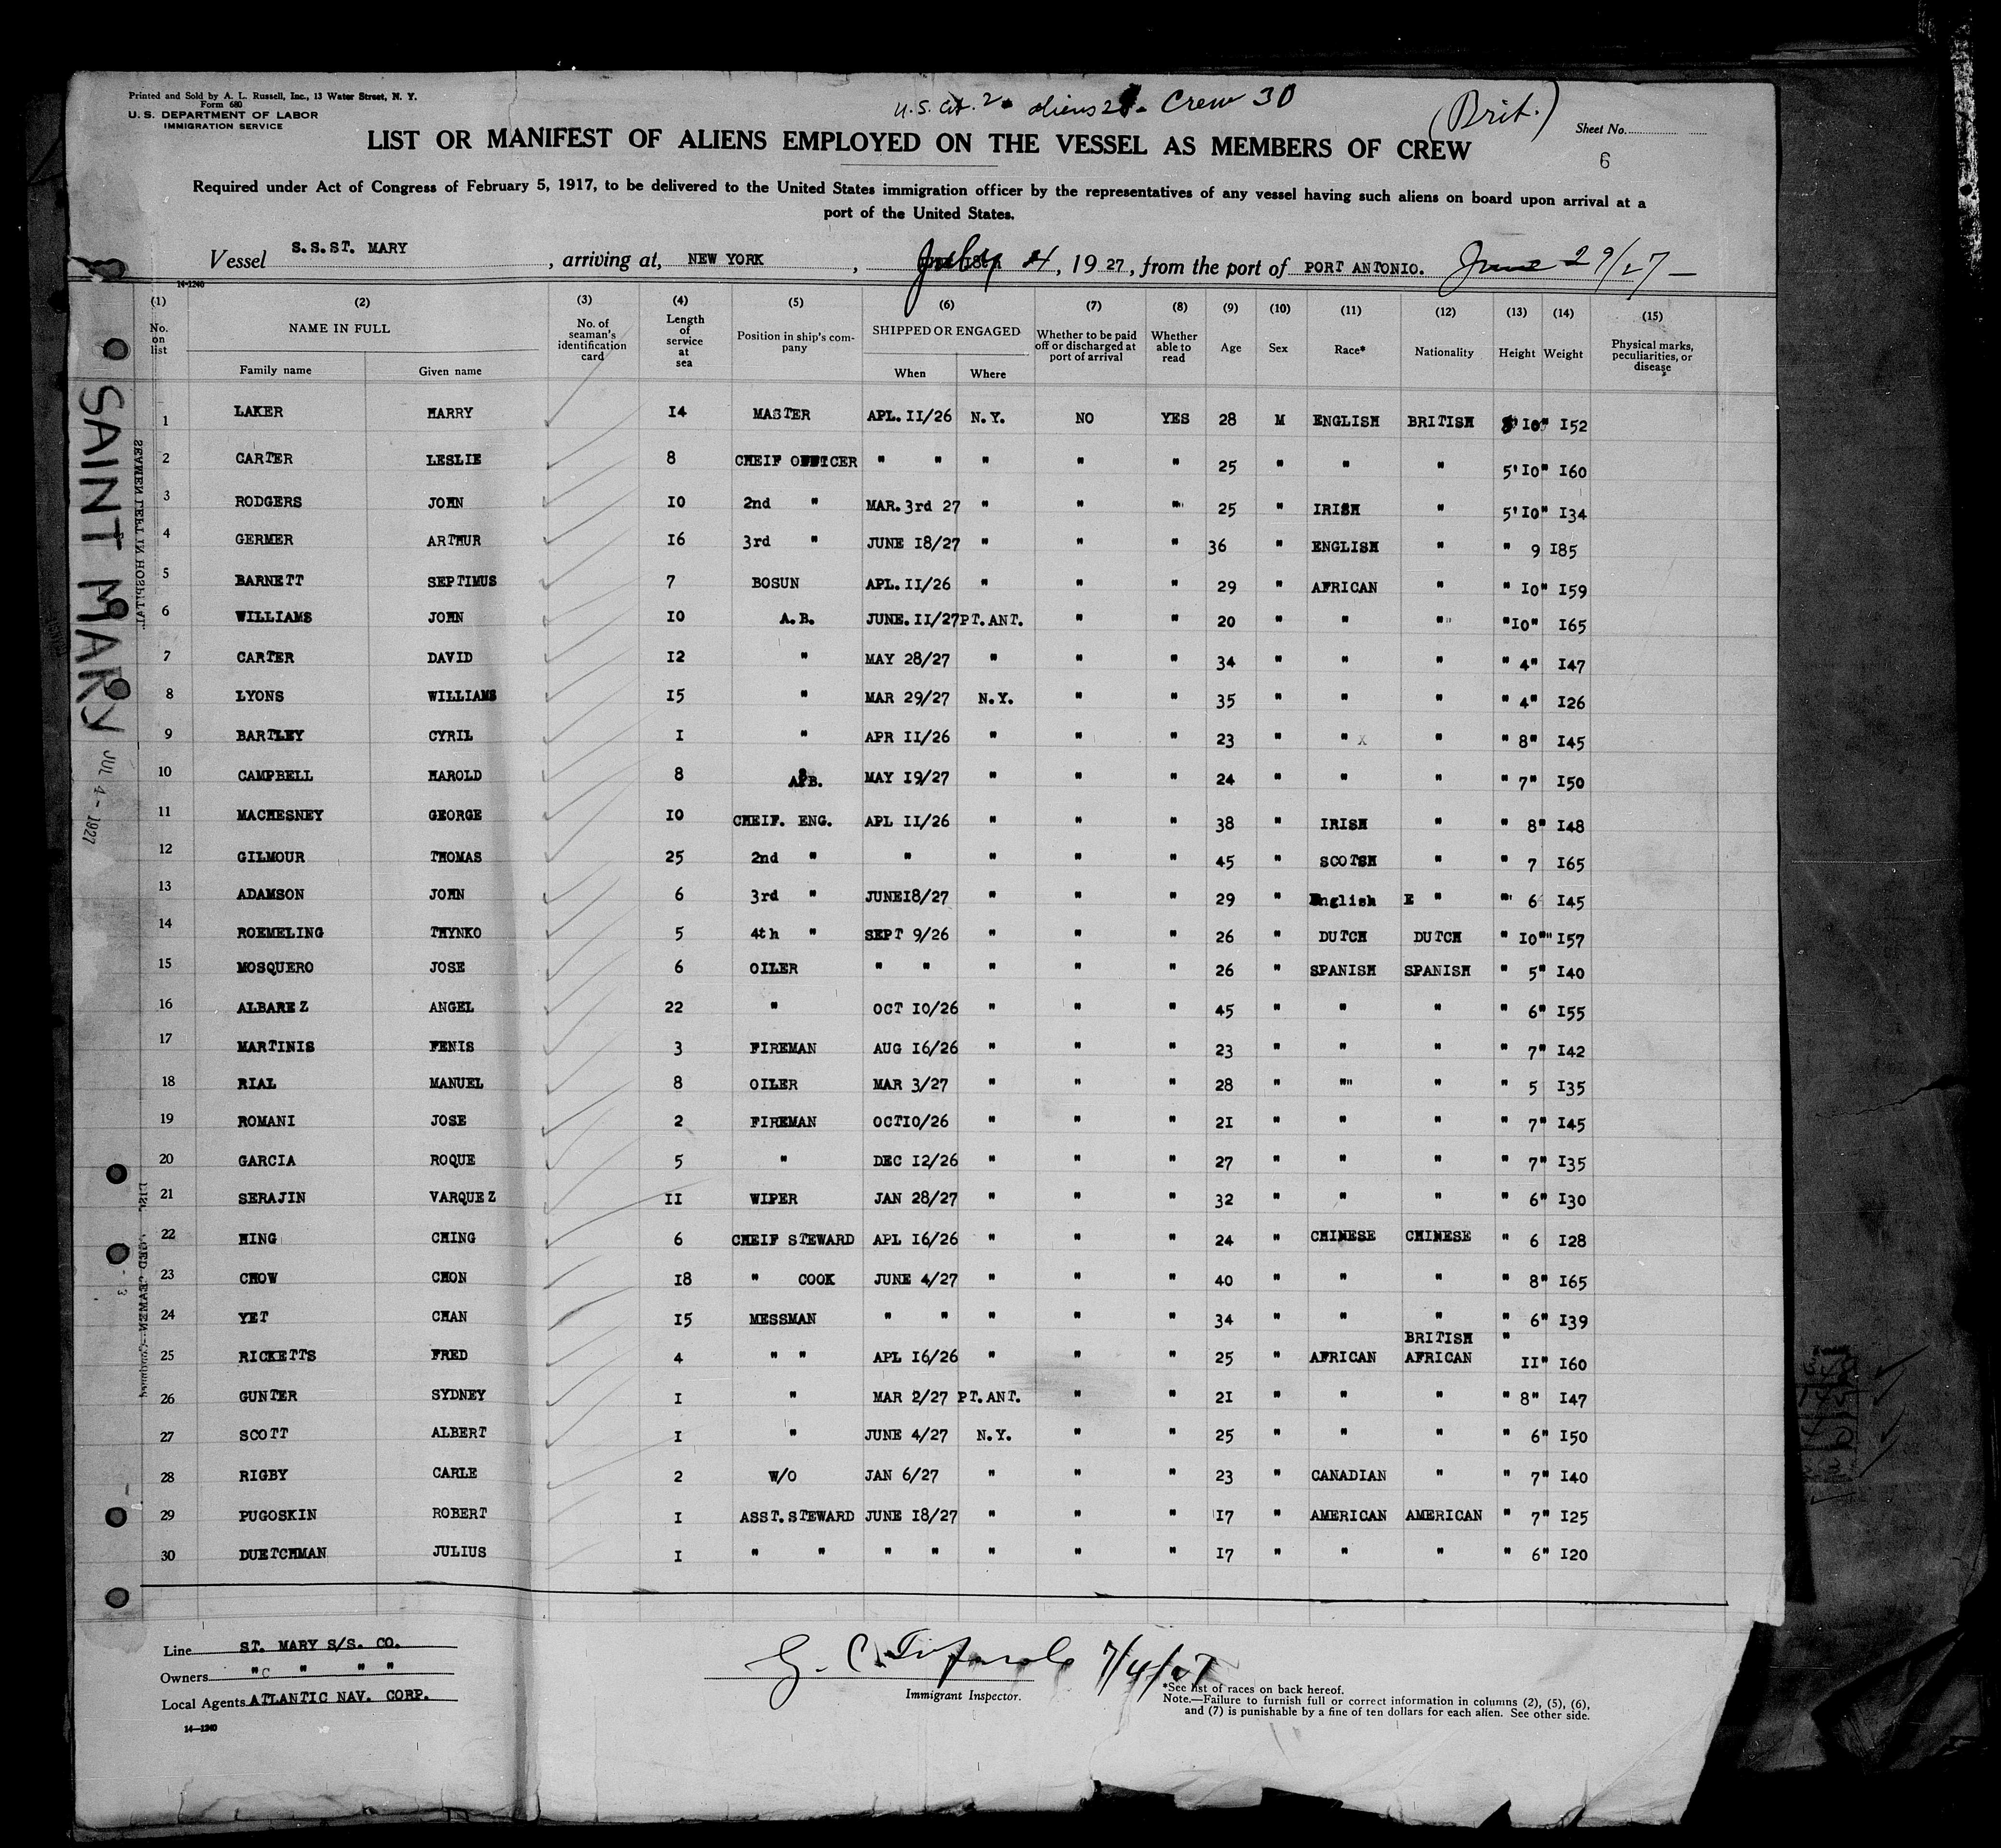 Printed and Sold by A. L. Russell, Inc., 13 Water Street, N. Y.
Form 680
U. S. DEPARTMENT OF LABOR
IMMIGRATION SERVICE
U.S. cit. 2 - aliens 28 - Crew 30
(Brit.)
Sheet No.
6
LIST OR MANIFEST OF ALIENS EMPLOYED ON THE VESSEL AS MEMBERS OF CREW
Required under Act of Congress of February 5, 1917, to be delivered to the United States immigration officer by the representatives of any vessel having such aliens on board upon arrival at a
port of the United States.
Vessel S.S.ST. MARY, arriving at, NEW YORK, July 4, 1927, from the port of PORT ANTONIO. June 29/27 -
14-1240
(1) (2) (3) (4) (5) (6) (7) (8) (9) (10) (11) (12) (13) (14) (15)
No. on list NAME IN FULL Family name Given name No. of seaman's identification card Length of service at sea Position in ship's company SHIPPED OR ENGAGED When Where Whether to be paid off or discharged at port of arrival Whether able to read Age Sex Race* Nationality Height Weight Physical marks, peculiarities, or disease
1 LAKER HARRY 14 MASTER APL. 11/26 N.Y. NO YES 28 M ENGLISH BRITISH 5' 10" 152
2 CARTER LESLIE 8 CHEIF OFFICER " " " " " 25 " " " 5'10" 160
3 RODGERS JOHN 10 2nd " MAR.3rd 27 " " " 25 " IRISH " 5'10" 134
4 GERMER ARTHUR 16 3rd " JUNE 18/27 " " " 36 " ENGLISH " " 9 185
5 BARNETT SEPTIMUS 7 BOSUN APL.11/26 " " " 29 " AFRICAN " " 10" 159
6 WILLIAMS JOHN 10 A.B. JUNE.11/27 PT.ANT. " " 20 " " " "10" 165
7 CARTER DAVID 12 " MAY 28/27 " " " 34 " " " " 4" 147
8 LYONS WILLIAMS 15 " MAR 29/27 N.Y. " " 35 " " " " 4" 126
9 BARTLEY CYRIL 1 " APR 11/26 " " " 23 " " X " " 8" 145
10 CAMPBELL HAROLD 8 A.B. MAY 19/27 " " " 24 " " " " 7" 150
11 MACHESNEY GEORGE 10 CHEIF. ENG. APL 11/26 " " " 38 " IRISH " " 8" 148
12 GILMOUR THOMAS 25 2nd " " " " " 45 " SCOTSH " " 7 165
13 ADAMSON JOHN 6 3rd " JUNE18/27 " " " 29 " English E " " 6 145
14 ROEMELING THYNKO 5 4th " SEPT 9/26 " " " 26 " DUTCH DUTCH " 10" 157
15 MOSQUERO JOSE 6 OILER " " " " " 26 " SPANISH SPANISH " 5" 140
16 ALBAREZ ANGEL 22 " OCT 10/26 " " " 45 " " " " 6" 155
17 MARTINIS FENIS 3 FIREMAN AUG 16/26 " " " 23 " " " " 7" 142
18 RIAL MANUEL 8 OILER MAR 3/27 " " " 28 " " " " 5 135
19 ROMANI JOSE 2 FIREMAN OCT10/26 " " " 21 " " " " 7" 145
20 GARCIA ROQUE 5 " DEC 12/26 " " " 27 " " " " 7" 135
21 SERAJIN VARQUEZ 11 WIPER JAN 28/27 " " " 32 " " " " 6" 130
22 HING CHING 6 CHEIF STEWARD APL 16/26 " " " 24 " CHINESE CHINESE " 6 128
23 CHOW CHON 18 " COOK JUNE 4/27 " " " 40 " " " " 8" 165
24 YET CHAN 15 MESSMAN " " " " " 34 " " " " 6" 139
25 RICKETTS FRED 4 " " APL 16/26 " " " 25 " AFRICAN BRITISH AFRICAN " 11" 160
26 GUNTER SYDNEY 1 " MAR 2/27 PT.ANT. " " 21 " " " " 8" 147
27 SCOTT ALBERT 1 " JUNE 4/27 N.Y. " " 25 " " " " 6" 150
28 RIGBY CARLE 2 W/O JAN 6/27 " " " 23 " CANADIAN " " 7" 140
29 PUGOSKIN ROBERT 1 ASST.STEWARD JUNE 18/27 " " " 17 " AMERICAN AMERICAN " 7" 125
30 DUETCHMAN JULIUS 1 " " " " " " " 17 " " " " 6" 120
SAINT MARY
JUL 4 - 1927
SEAMEN LEFT IN HOSPITAL
Line ST. MARY S/S. CO.
Owners "C " " "
Local Agents ATLANTIC NAV. CORP.
14-1240
7/4/27
Immigrant Inspector.
*See list of races on back hereof.
Note.—Failure to furnish full or correct information in columns (2), (5), (6),
and (7) is punishable by a fine of ten dollars for each alien. See other side.